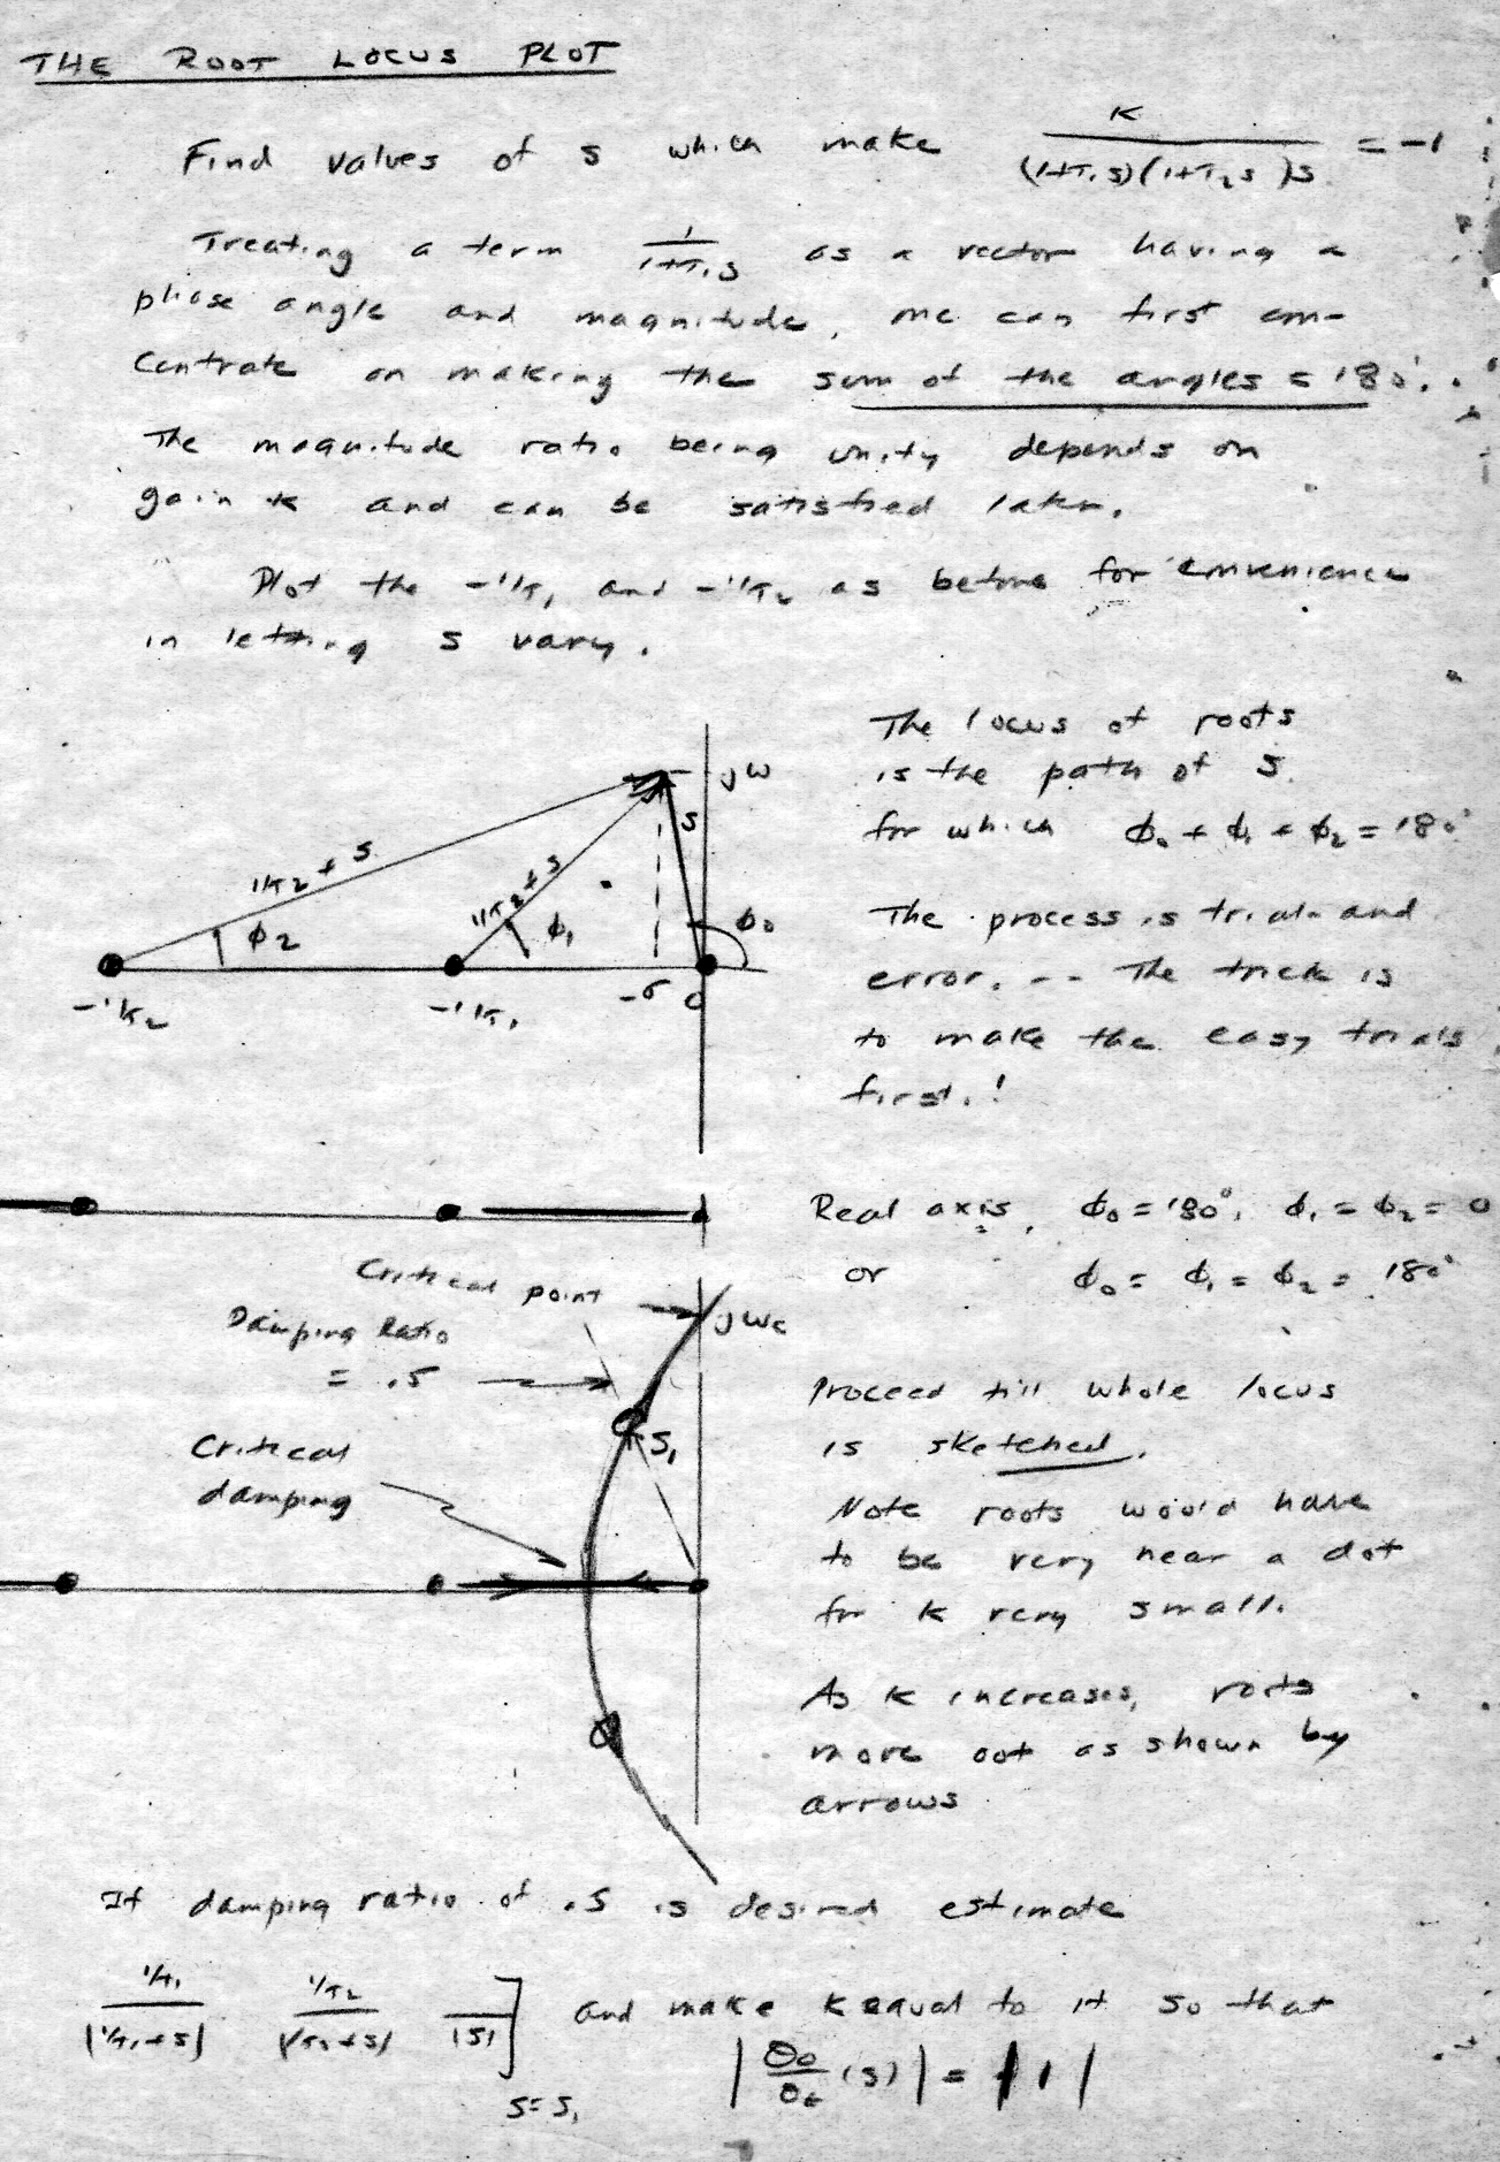 THE ROOT LOCUS PLOT
Find values of s which make K / (1+T₁s)(1+T₂s)s = -1
Treating a term 1/(1+T₁s) as a vector having a
phase angle and magnitude, one can first con-
centrate on making the sum of the angles = 180°.
The magnitude ratio being unity depends on
gain K and can be satisfied later.
Plot the -1/T₁ and -1/T₂ as before for convenience
in letting s vary.
The locus of roots
is the path of s
for which ϕ₀ + ϕ₁ + ϕ₂ = 180°
The process is trial and
error. -- The trick is
to make the easy trials
first.!
jω
s
1/T₂ + s
1/T₂ + s
ϕ₂
ϕ₁
ϕ₀
-1/T₂
-1/T₁
-σ
0
Real axis, ϕ₀ = 180°, ϕ₁ = ϕ₂ = 0
or ϕ₀ = ϕ₁ = ϕ₂ = 180°
Critical point
jωc
Damping Ratio
= .5
S₁
Critical
damping
Proceed till whole locus
is sketched.
Note roots would have
to be very near a dot
for K very small.
As K increases, roots
move out as shown by
arrows
If damping ratio of .5 is desired estimate
1/T₁ / |1/T₁+s| 1/T₂ / |1/T₂+s| / |s| ] s=s₁ and make K equal to it so that
|θ₀/θε (s)| = |1|